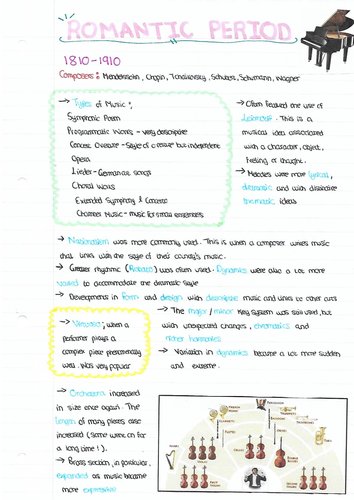 ROMANTIC PERIOD
1810-1910
Composers: Mendelssohn, Chopin, Tchaikovsky, Schubert, Schumann, Wagner
→ Types of Music:
Symphonic Poem
Programmatic Works - very descriptive
Concert Overture - style of overture but independent
Opera
Lieder - German songs
Choral Works
Extended Symphony & Concerto
Chamber Music - music for small ensembles
→ Often featured the use of
Leitmotif. This is a
musical idea associated
with a character, object,
feeling or thought.
→ Melodies were more lyrical,
dramatic and with distinctive
thematic ideas
→ Nationalism was more commonly used. This is when a composer writes music
that links with the style of their country's music.
→ Greater rhythmic (Rubato) was often used. Dynamics were also a lot more
varied to accommodate the dramatic style
→ Developments in form and design with descriptive music and links to other arts
→ Virtuosic; when a
performer plays a
complex piece phenomenally
well. Was very popular
→ The major/minor key system was still used, but
with unexpected changes, chromatics and
richer harmonies
→ Variation in dynamics became a lot more sudden
and extreme.
→ Orchestra increased
in size once again. The
length of many pieces also
increased (some went on for
a long time!).
→ Brass section, in particular,
expanded as music became
more expressive